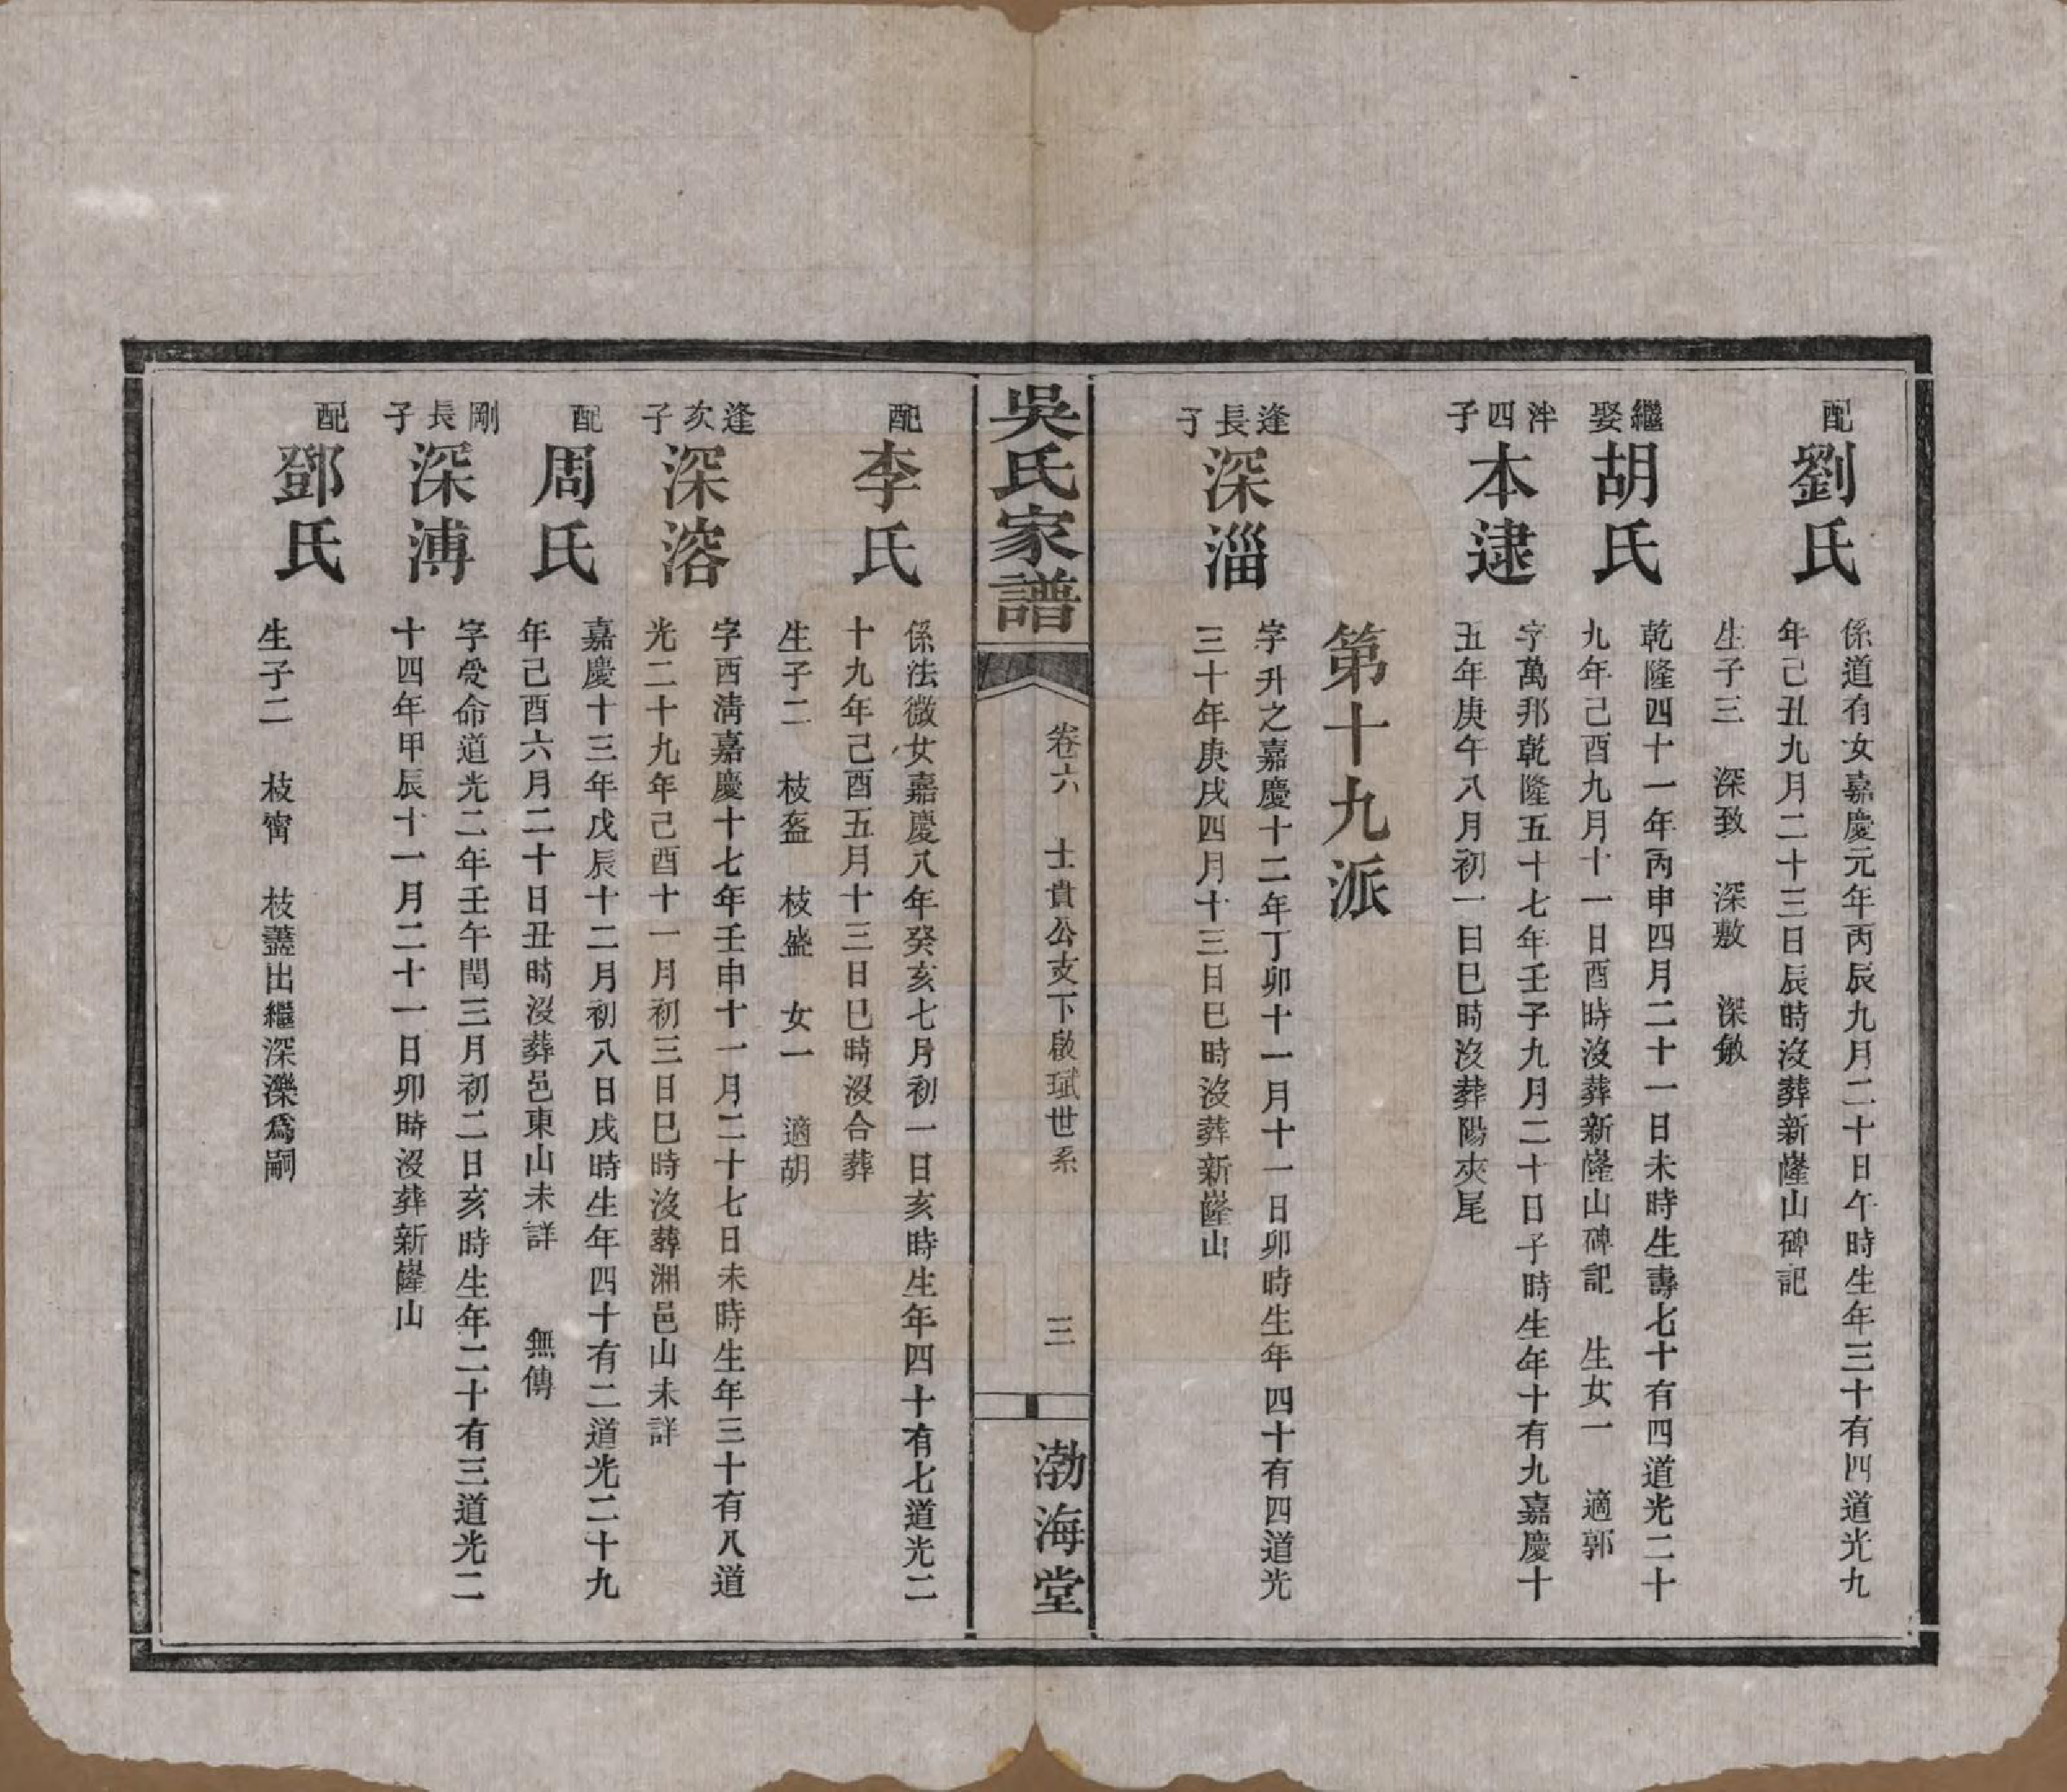 配
劉氏
係道有女嘉慶元年丙辰九月二十日午時生年三十有四道光九
年己丑九月二十三日辰時沒葬新窿山碑記
生子三　深致　深敷　深敏
繼娶
胡氏
乾隆四十一年丙申四月二十一日未時生壽七十有四道光二十
九年己酉九月十一日酉時沒葬新窿山碑記　生女一　適郭
泮四子
本逮
字萬邦乾隆五十七年壬子九月二十日子時生年十有九嘉慶十
五年庚午八月初一日巳時沒葬陽夾尾
第十九派
逢長子
深淄
字升之嘉慶十二年丁卯十一月十一日卯時生年四十有四道光
三十年庚戌四月十三日巳時沒葬新窿山
吳氏家譜
卷六　士貴公支下啟珷世系
三
渤海堂
配
李氏
係法微女嘉慶八年癸亥七月初一日亥時生年四十有七道光二
十九年己酉五月十三日巳時沒合葬
生子二　枝盔　枝盛　女一　適胡
逢次子
深溶
字西清嘉慶十七年壬申十一月二十七日未時生年三十有八道
光二十九年己酉十一月初三日巳時沒葬湘邑山未詳
配
周氏
嘉慶十三年戊辰十二月初八日戌時生年四十有二道光二十九
年己酉六月二十日丑時沒葬邑東山未詳　無傳
剛長子
深溥
字受命道光二年壬午閏三月初二日亥時生年二十有三道光二
十四年甲辰十一月二十一日卯時沒葬新窿山
配
鄧氏
生子二　枝甯　枝藎出繼深濼爲嗣